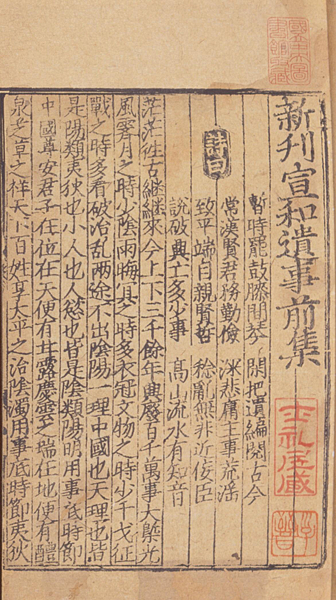 新刊宣和遺事前集
詩曰
暫時罷鼓膝間琴 閑把遺編閱古今
常漢賢君務勤儉 深悲庸主事荒淫
致平端自親賢哲 稔亂無非近佞臣
說破興亡多少事 高山流水有知音
茫茫往古繼繼來今上下三千餘年興廢百千萬事大槩光
風霽月之時少陰雨晦冥之時多衣冠文物之時少干戈征
戰之時多看破治乱兩途不出陰陽一理中國也天理也皆
是陽類夷狄也小人也人慾也皆是陰類陽明用事底時節
中國奠安君子在位在天便有甘露慶雲之瑞在地便有醴
泉芝草之祥天下百姓享大平之治陰濁用事底時節夷狄
士礼居藏